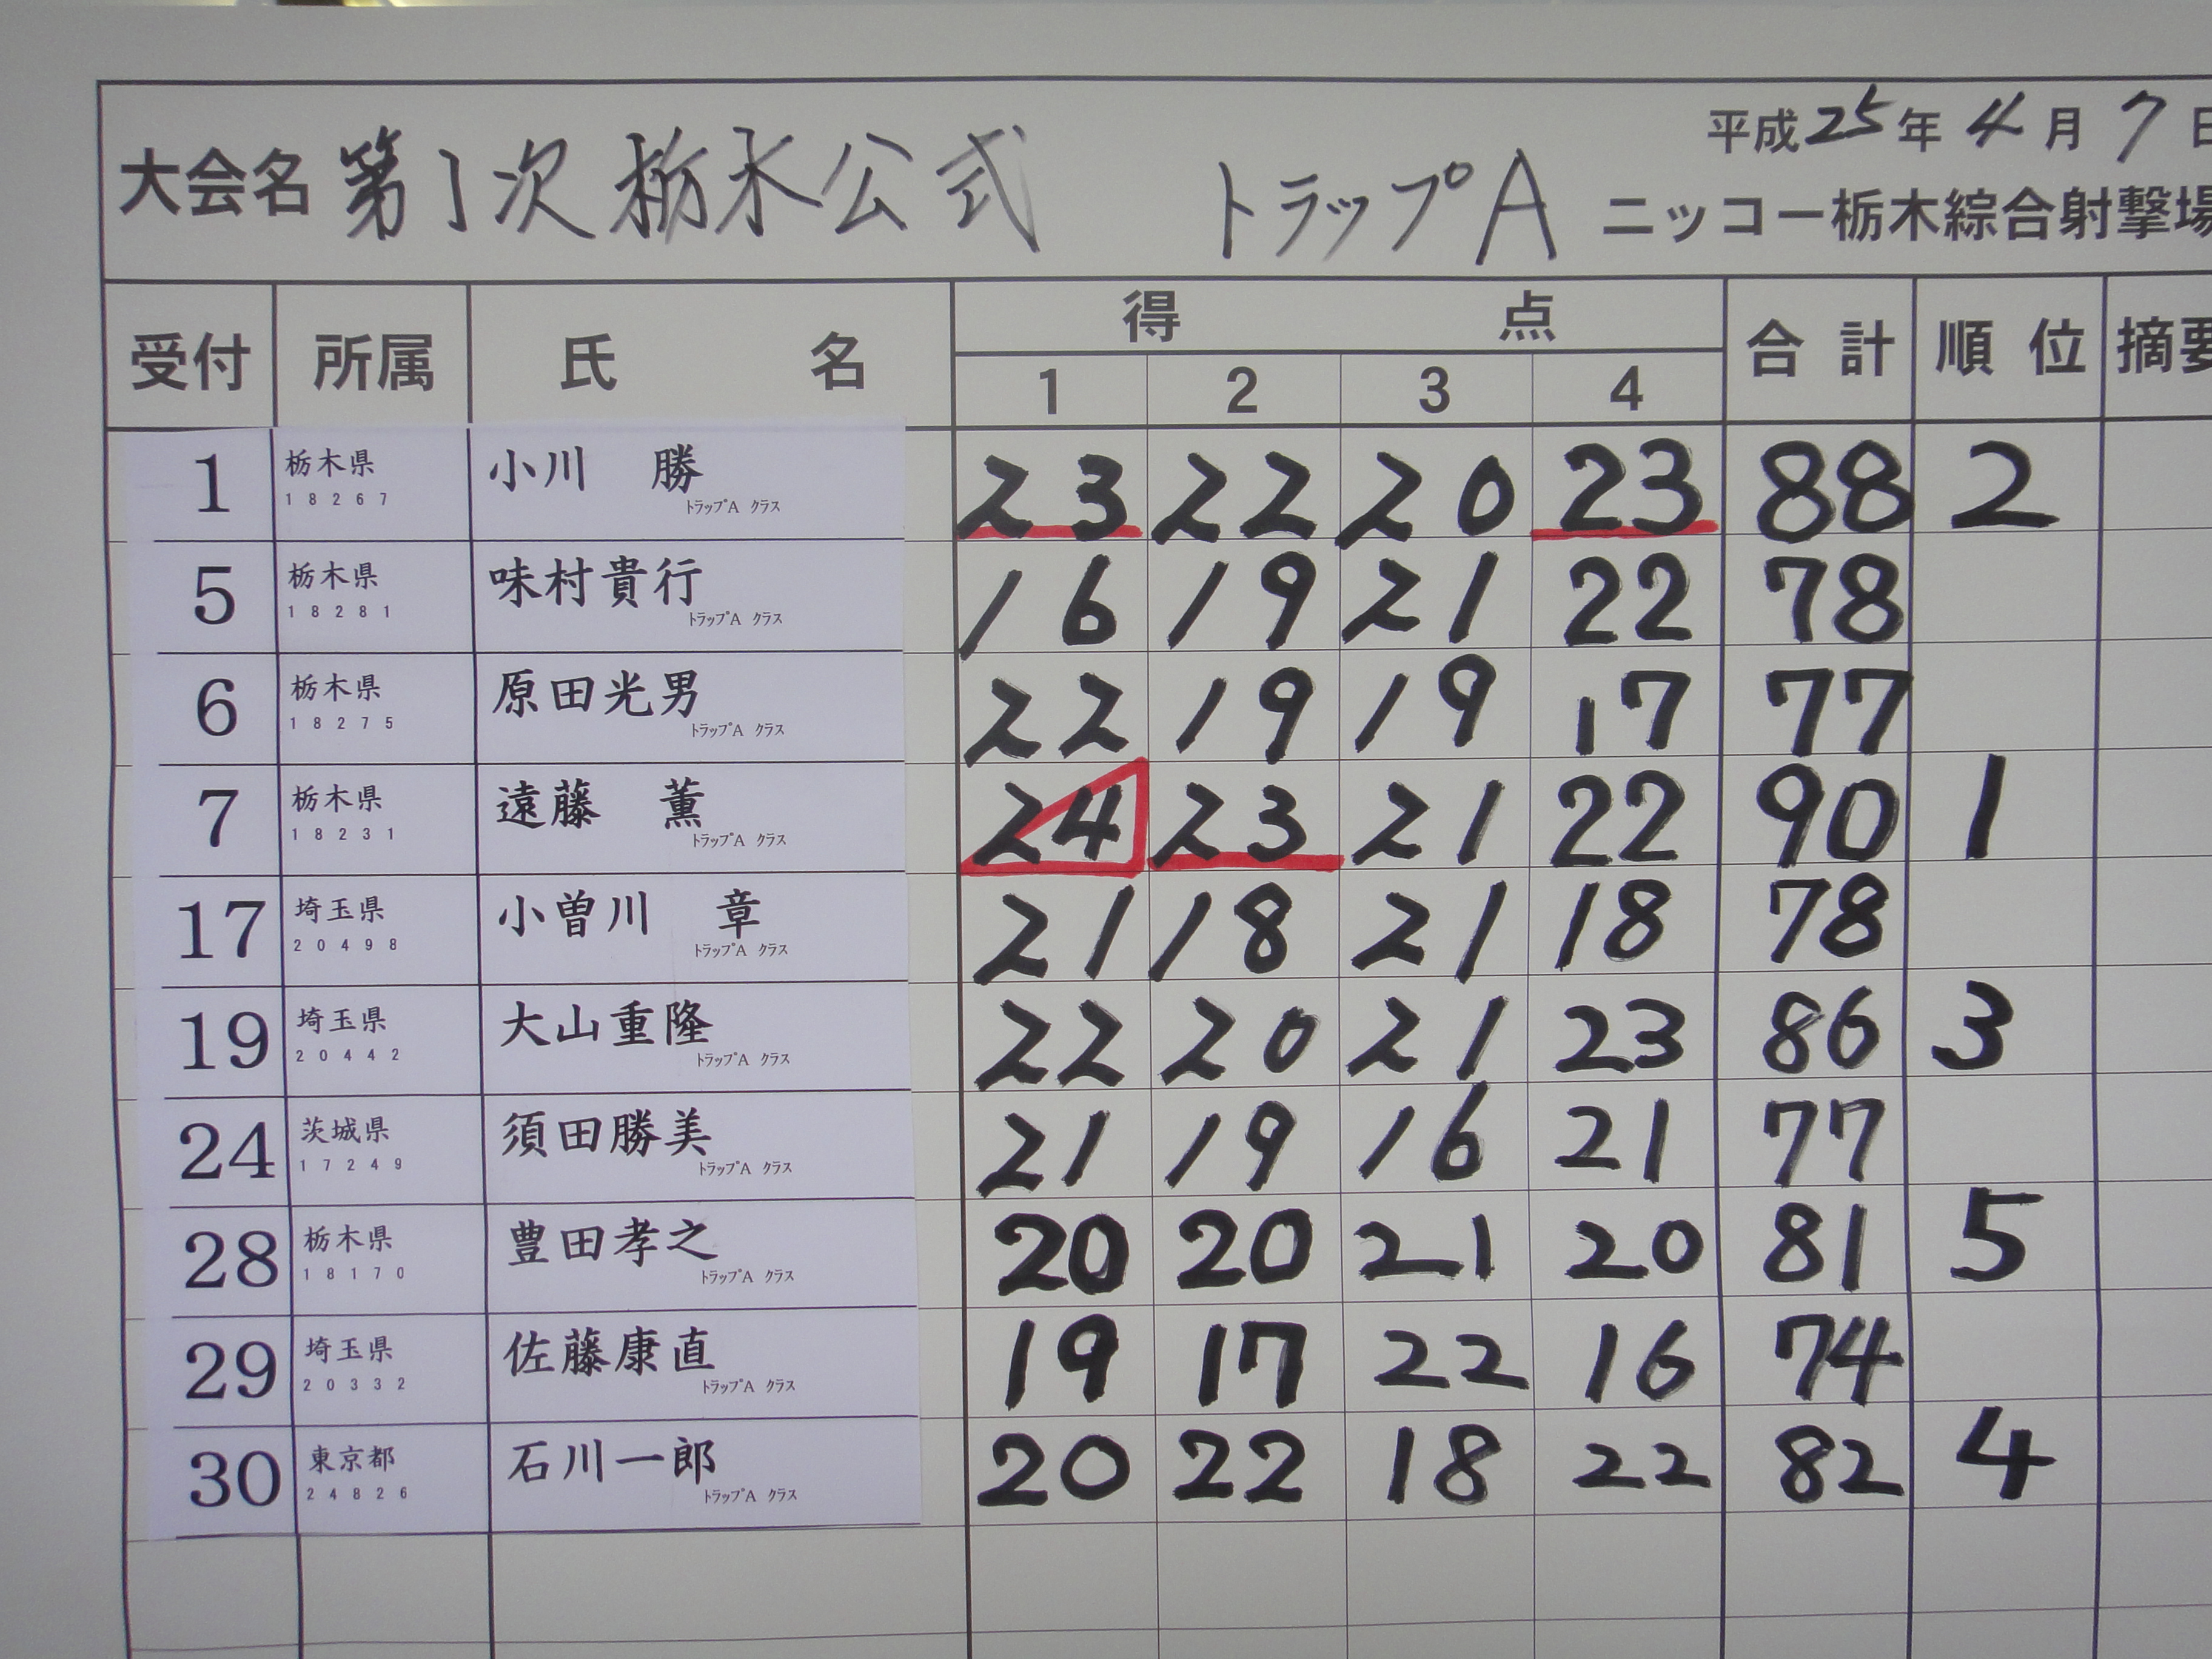 平成25年4月7日
大会名 第1次栃木公式 トラップA ニッコー栃木綜合射撃場
受付 所属 氏名 得点 合計 順位 摘要
1 2 3 4
1 栃木県 小川 勝 23 22 20 23 88 2
18267 トラップA クラス
5 栃木県 味村貴行 16 19 21 22 78
18281 トラップA クラス
6 栃木県 原田光男 22 19 19 17 77
18275 トラップA クラス
7 栃木県 遠藤 薫 24 23 21 22 90 1
18231 トラップA クラス
17 埼玉県 小曽川 章 21 18 21 18 78
20498 トラップA クラス
19 埼玉県 大山重隆 22 20 21 23 86 3
20442 トラップA クラス
24 茨城県 須田勝美 21 19 16 21 77
17249 トラップA クラス
28 栃木県 豊田孝之 20 20 21 20 81 5
18170 トラップA クラス
29 埼玉県 佐藤康直 19 17 22 16 74
20332 トラップA クラス
30 東京都 石川一郎 20 22 18 22 82 4
24826 トラップA クラス